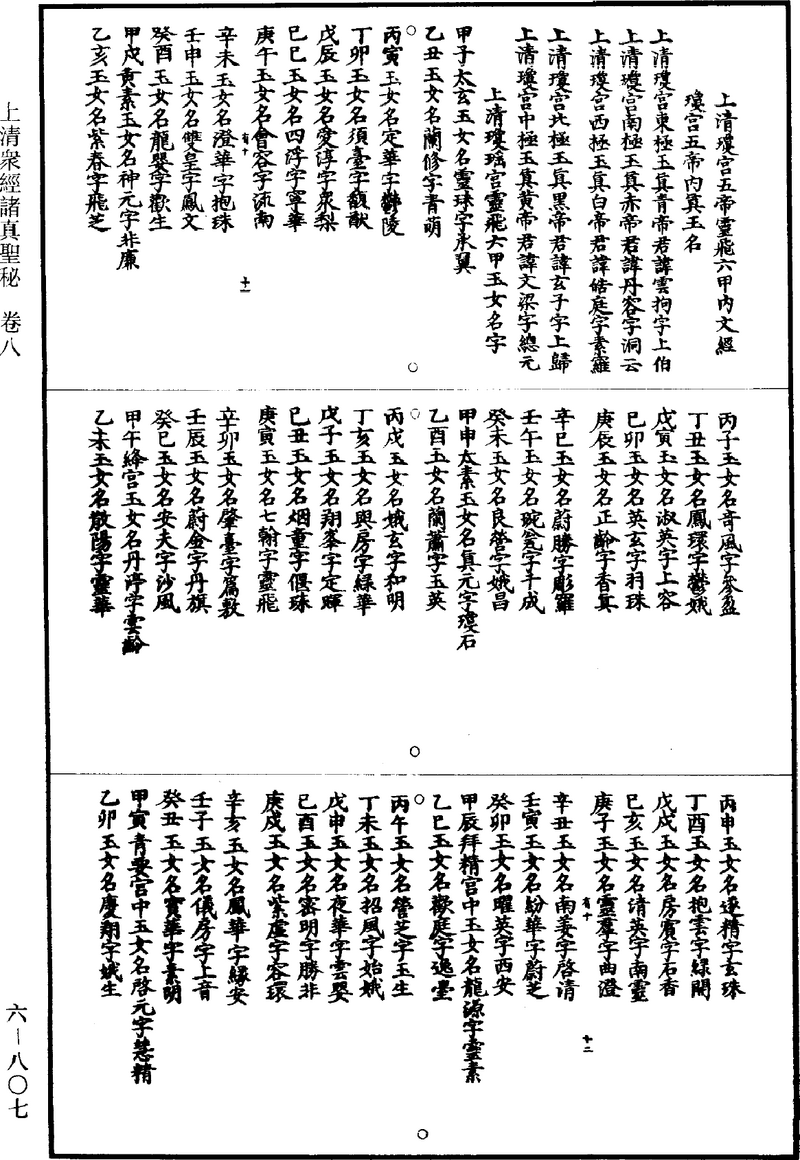 上清瓊宮五帝靈飛六甲內文經
瓊宮五帝內真玉名
上清瓊宮東極玉真青帝君諱雲拘字上伯
上清瓊宮南極玉真赤帝君諱丹容字洞云
上清瓊宮西極玉真白帝君諱皓庭字素羅
上清瓊宮北極玉真黑帝君諱玄子字上歸
上清瓊宮中極玉真黃帝君諱文梁字總元
上清瓊瑶宮靈飛六甲玉女名字
甲子太玄玉女名靈珠字承翼
乙丑玉女名蘭修字青萌
丙寅玉女名定華字鬱陵
丁卯玉女名須臺字馥猷
戊辰玉女名愛淳字泉梨
己巳玉女名四浮字寧華
庚午玉女名會容字流南
有十
辛未玉女名澄華字抱珠
十一
壬申玉女名雙皇字鳳文
癸酉玉女名龍嬰字歡生
甲戌黃素玉女名神元字非廉
乙亥玉女名紫春字飛芝
丙子玉女名奇風字參盈
丁丑玉女名鳳環字鬱娥
戊寅玉女名淑英字上容
己卯玉女名英玄字羽珠
庚辰玉女名正齡字香真
辛巳玉女名蔚勝字彫羅
壬午玉女名琬翁字千成
癸未玉女名良營字娥昌
甲申太素玉女名真元字瓊石
乙酉玉女名蘭蕭字玉英
丙戌玉女名娥玄字和明
丁亥玉女名與房字綠華
戊子玉女名翔峯字定暉
己丑玉女名烟童字偃珠
庚寅玉女名七翰字靈飛
辛卯玉女名肇臺字篇敷
壬辰玉女名蔚金字丹旗
癸巳玉女名安夫字沙風
甲午絳宮玉女名丹淳字雲齡
乙未玉女名散陽字靈華
丙申玉女名逐精字玄珠
丁酉玉女名抱雲字綠開
戊戌玉女名房賓字石香
己亥玉女名清英字南靈
庚子玉女名靈羣字曲澄
有十
十二
辛丑玉女名南姜字啓清
壬寅玉女名紛華字蔚芝
癸卯玉女名曜英字西安
甲辰拜精宮中玉女名龍源字靈素
乙巳玉女名歡庭字逸臺
丙午玉女名營芝字玉生
丁未玉女名招風字始娥
戊申玉女名夜華字雲嬰
己酉玉女名密明字勝非
庚戌玉女名紫虛字容環
辛亥玉女名鳳華字綠安
壬子玉女名儀房字上音
癸丑玉女名寶華字素明
甲寅青要宮中玉女名啓元字慧精
乙卯玉女名慶翔字娥生
上清衆經諸真聖秘 卷八
六—八〇七